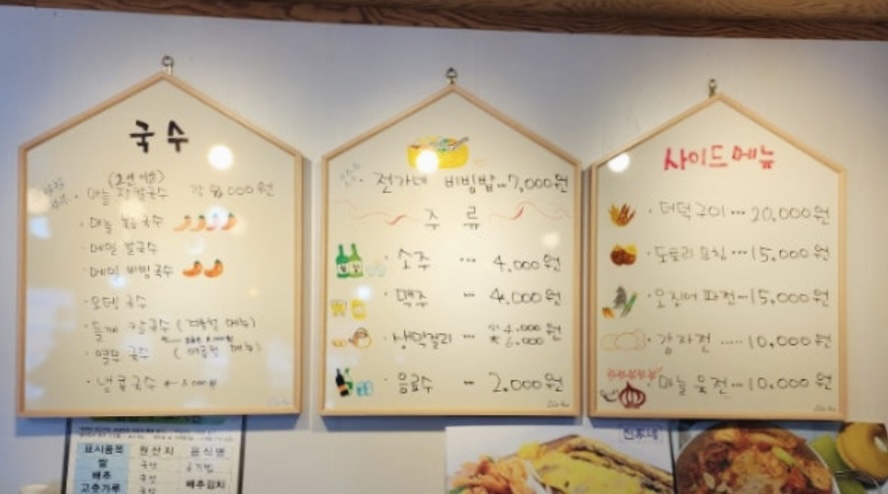 국수
마늘 칼국수 각 8,000원
마늘 칼국수
메밀 칼국수
메밀 비빔국수
오뎅 국수
들깨 칼국수 (겨울철 메뉴)
열무 국수 (여름철 메뉴)
냉콩국수
전가네 비빔밥...7,000원
주 류
소주 ... 4,000원
맥주 ... 4,000원
생막걸리 ... 小 4,000 大 6,000 원
음료수 ... 2,000원
사이드메뉴
더덕구이...20,000원
도토리묵...15,000원
오징어 파전-15,000원
감자전 .... 10,000원
마늘 육전...10,000원
표시품목 원산지 음식명
쌀 국산 공기밥
배추 국산 배추김치
고춧가루 국산